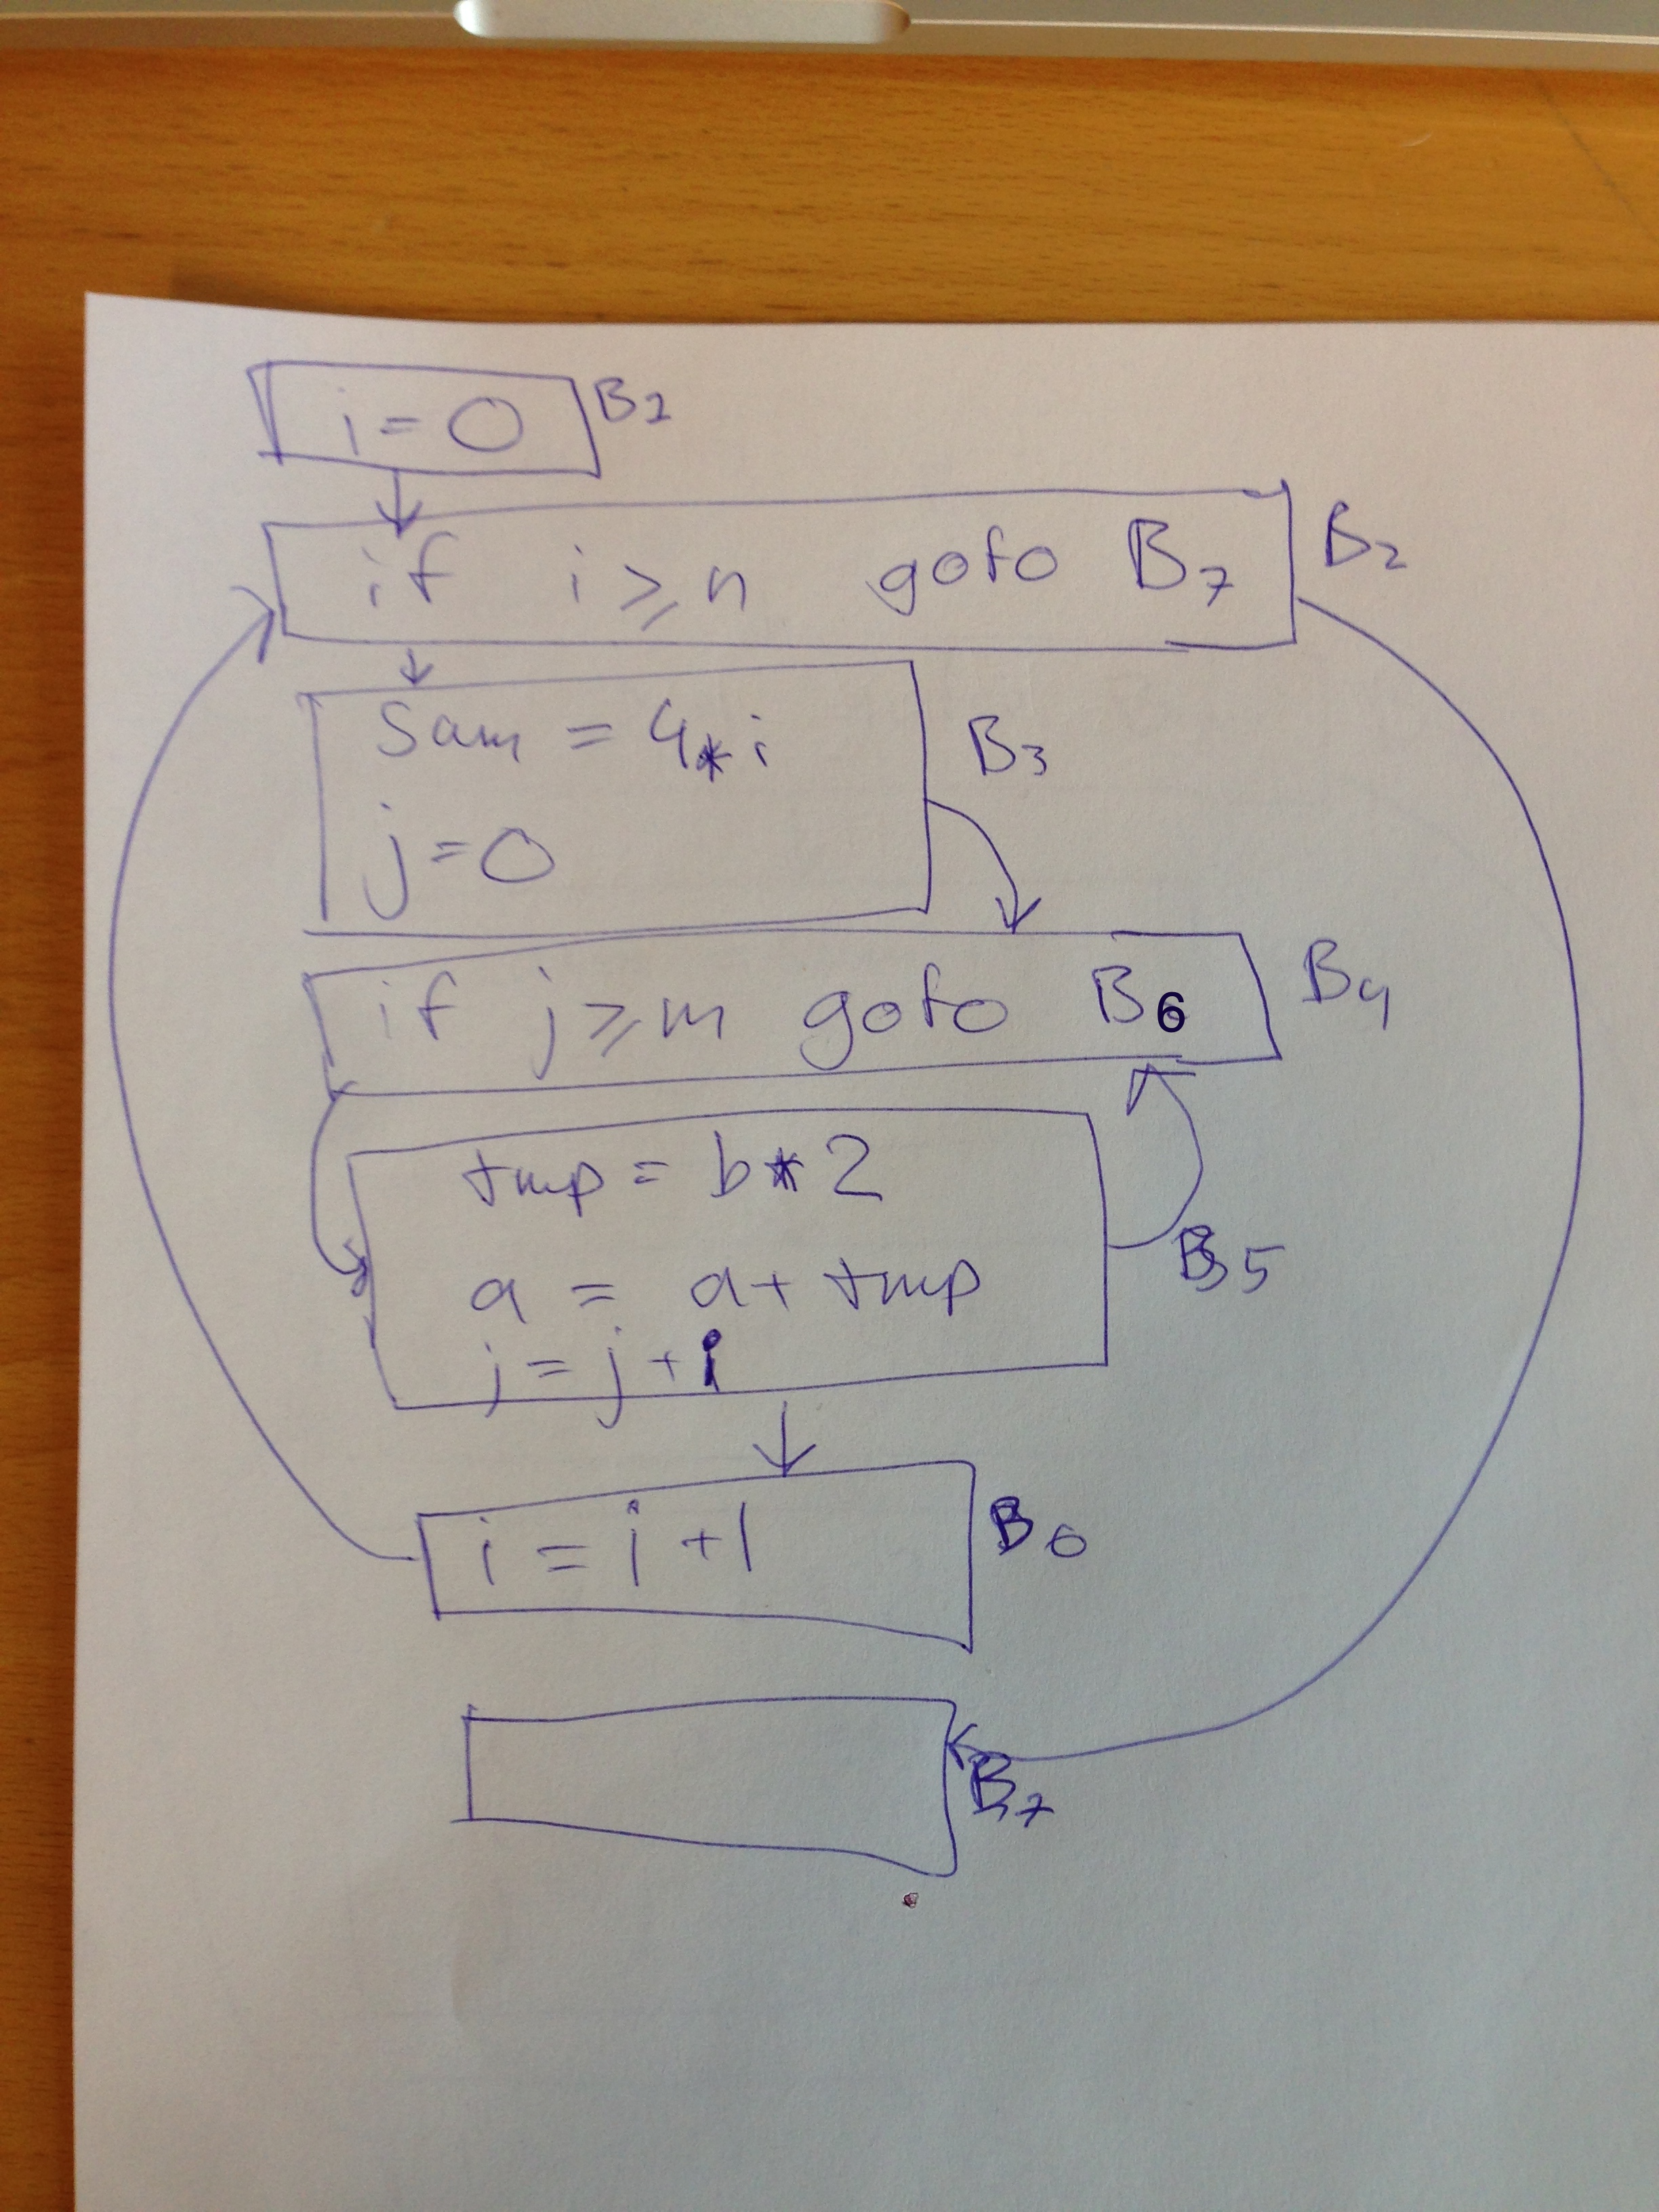 i = 0 B1
if i ≥ n goto B7 B2
sam = 4 * i B3
j = 0
if j ≥ m goto B6 B4
tmp = b * 2
a = a + tmp B5
j = j + i
i = i + 1 B6
B7